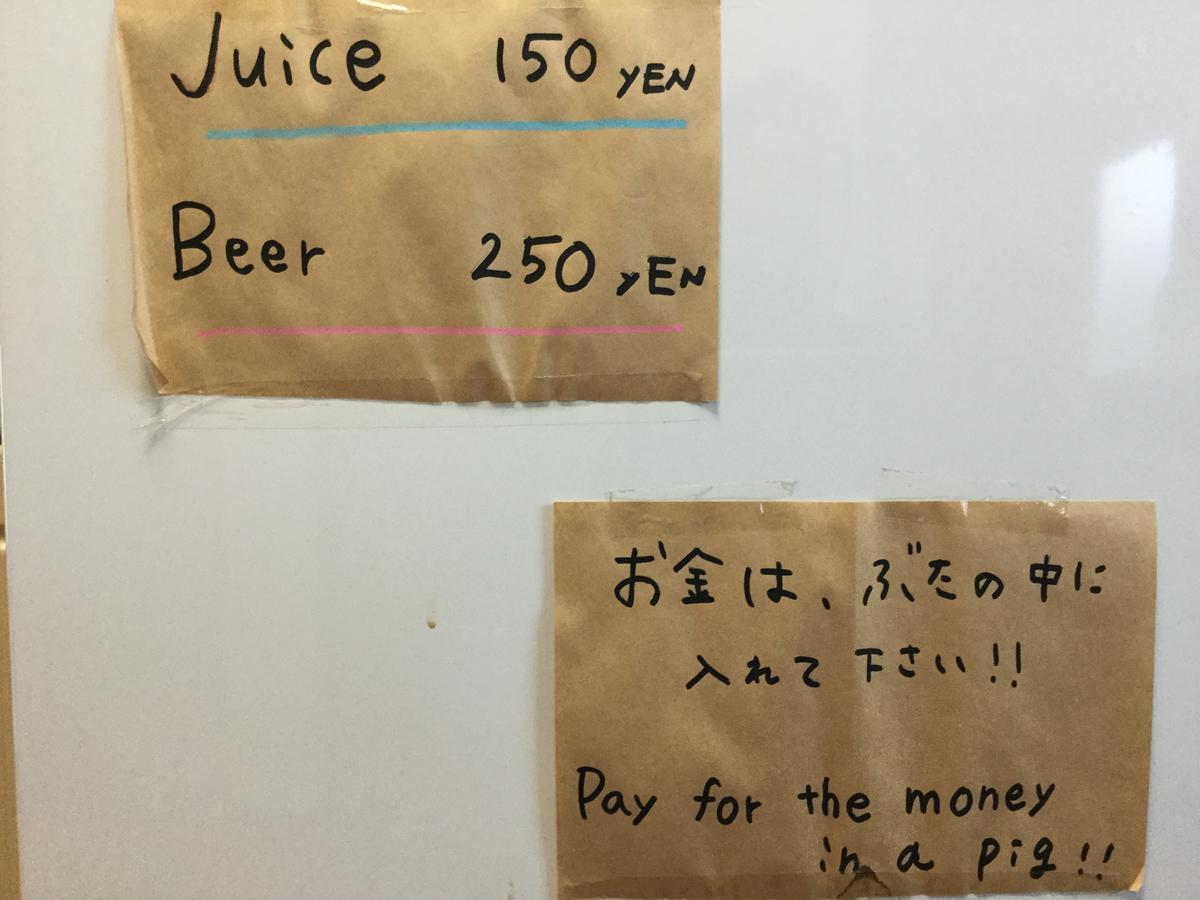 Juice 150 YEN
Beer 250 YEN
お金は、ぶたの中に
入れて下さい!!
Pay for the money
in a pig!!